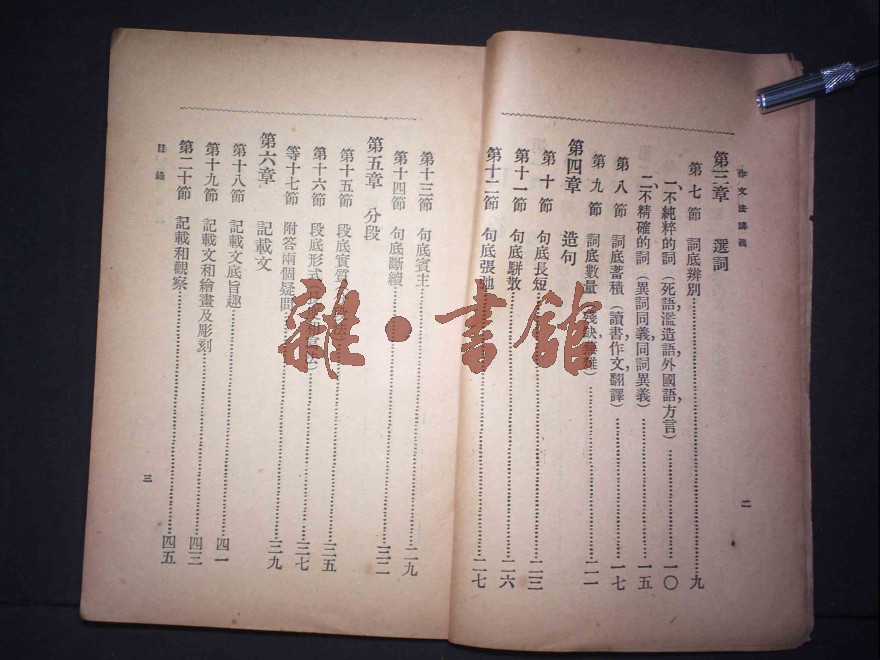 作文法講義
第三章 選詞
第七節 詞底辨別……九
一、不純粹的詞（死語，濫造語，外國語，方言）……一〇
二、不精確的詞（異詞同義，同詞異義）……一五
第八節 詞底蓄積（讀書，作文，翻譯）……一七
第九節 詞底數量……二一
第四章 造句
第十節 句底長短……二三
第十一節 句底駢散……二六
第十二節 句底張弛……二七
二
第十三節 句底賓主……二九
第十四節 句底斷續……三二
第五章 分段
第十五節 段底實質……三五
第十六節 段底形式……三七
等十七節 附答兩個疑問……三九
第六章 記載文
第十八節 記載文底旨趣……四一
第十九節 記載文和繪畫及彫刻……四三
第二十節 記載和觀察……四五
目錄
三
雜·書館